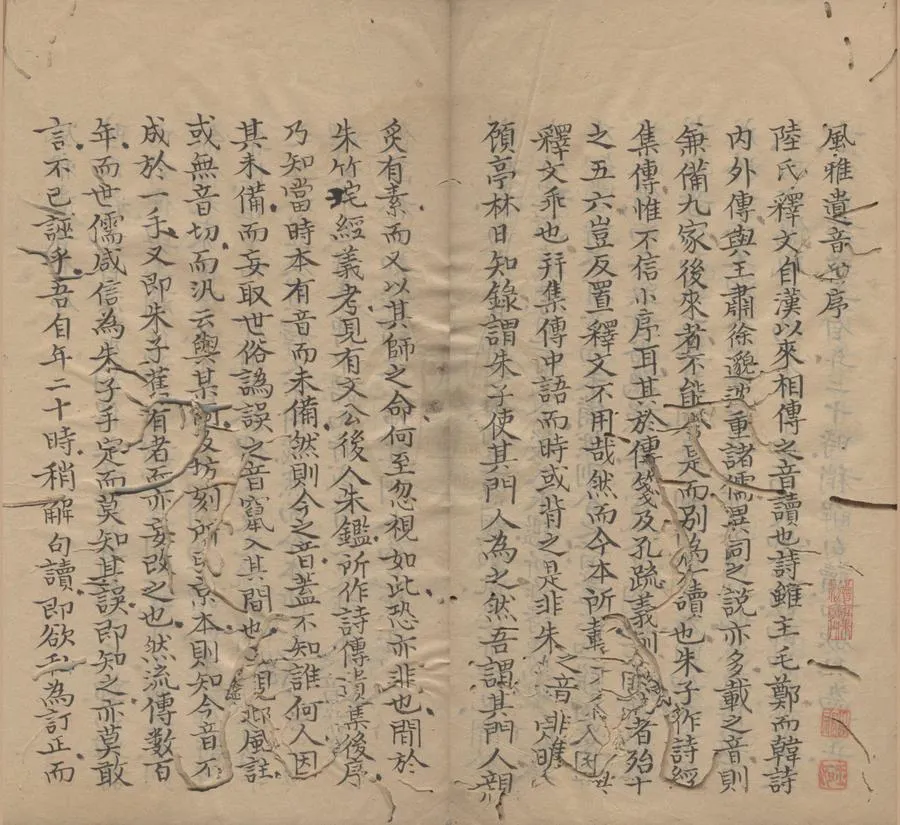 風雅遺音序
陸氏釋文自漢以來相傳之音讀也詩雖主毛鄭而韓詩
內外傳與王肅徐邈沈重諸儒異同之說亦多載之音則
兼備九家後來者不能是而別為讀也朱子作詩經
集傳惟不信小序耳其於傳箋及孔疏義者殆十
之五六豈反置釋文不用哉然而今本所人因
釋文乖也幷集傳中語而時或背之是非朱之音
頋亭林日知錄謂朱子使其門人為之然吾謂其門人親
炙有素而又以其師之命何至忽視如此恐亦非也間於
朱竹垞經義考見有文公後人朱鑑所作詩傳遺集後序
乃知當時本有音而未備然則今之音蓋不知誰何人因
其未備而妄取世俗譌誤之音竄入其間也觀邶風註
或無音切而汎云與某同及坊刻所京本則知今音不
成於一手又即朱子舊有者而亦妄改之也然流傳數百
年而世儒咸信為朱子手定而莫知其誤即知之亦莫敢
言不已誣乎吾自年二十時稍解句讀即欲為訂正而